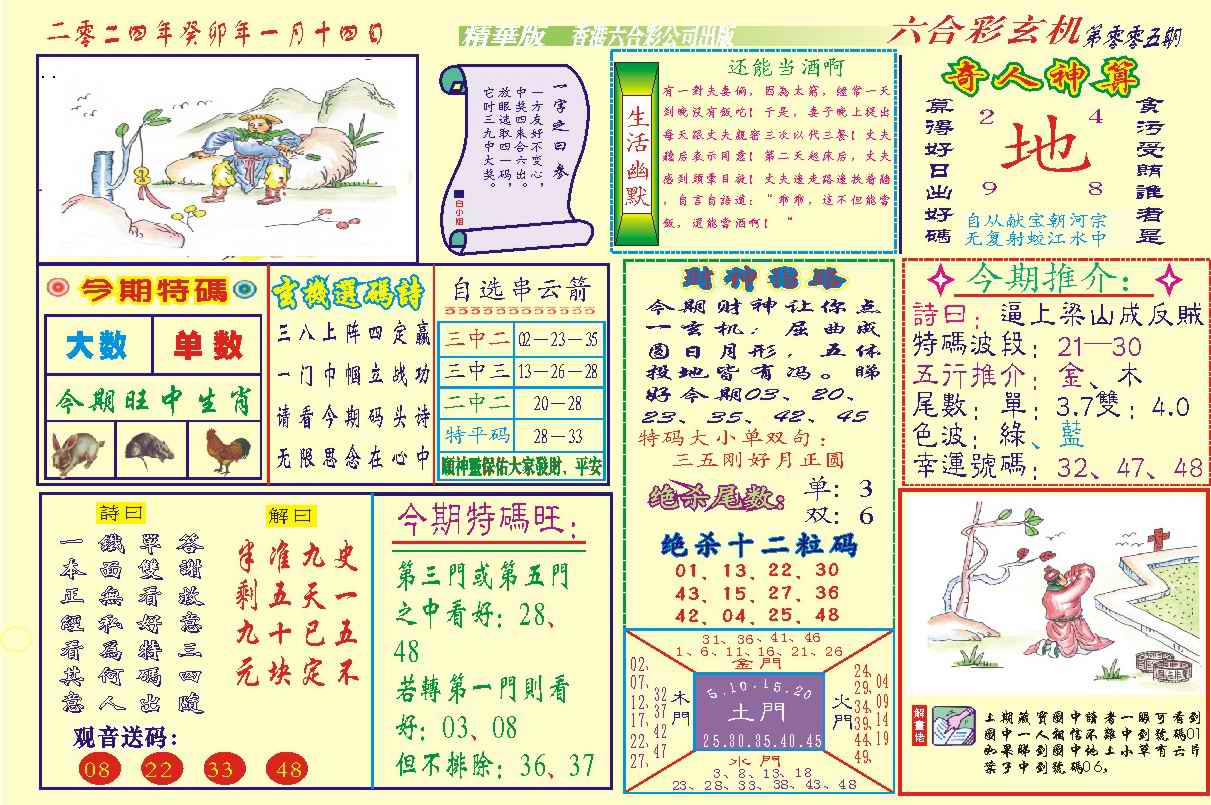 二零二四年癸卯年一月十四日
精華版 香港六合彩公司出版
六合彩玄机 第零零五期
一字之曰参
一方友好不变心，
中奖四来合六出。
放眼选取四一码，
它叶三九中大奖。
白小姐
生活幽默
还能当酒啊
有一對夫妻倆，因為太窮，經常一天
到晚沒有飯吃！于是，妻子晚上提出
每天跟丈夫親密三次以代三餐！丈夫
聽后表示同意！第二天起床后，丈夫
感到頭暈目旋！丈夫遠走路遠扶着牆
，自言自語道：“乖乖，這不但能當
飯，還能當酒啊！“
奇人神算
算得好日出好碼
貪污受賄誰者是
2 4
地
9 8
自从献宝朝河宗
无复射蛟江水中
今期特碼
大数 单数
今期旺中生肖
玄機選碼詩
三八上阵四定赢
一门巾帼立战功
请看今期码头诗
无限思念在心中
自选串云箭
三中二 02—23—35
三中三 13—26—28
二中二 20—28
特平码 28—33
願神靈保佑大家發財、平安
財神報路
今期财神让你点
一玄机：屈曲成
圆日月形，五体
投地皆有冯。睇
好今期03、20、
23、35、42、45
特码大小单双句：
三五刚好月正圆
绝杀尾数：
单：3
双：6
绝杀十二粒码
01、13、22、30
43、15、27、36
42、04、25、48
今期推介：
詩曰：逼上梁山成反賊
特碼波段：21—30
五行推介：金、木
尾數：單：3.7雙：4.0
色波：綠、藍
幸運號碼：32、47、48
詩曰
一本正經看其意
鐵面無私為何人
單雙看好特碼出
答謝救意三四隨
解曰
半剩九元
准五十块
九天已定
史一五不
观音送码：
08 22 33 48
今期特碼旺：
第三門或第五門
之中看好：28、
48
若轉第一門則看
好：03、08
但不排除：36、37
31、36、41、46
1、6、11、16、21、26
金門
02、07、12、17、22、27、
32、37、42、47
木門
5.10.15.20
土門
25.30.35.40.45
火門
24、29、34、39、44、49、
04、09、14、19
水門
3、8、13、18
23、28、33、38、43、48
解畫佬
上期藏寶圖中讀者一睇可看到
圖中一人相信不難中到號碼01
如果睇到圖中地上小草有六片
葉子中到號碼06，